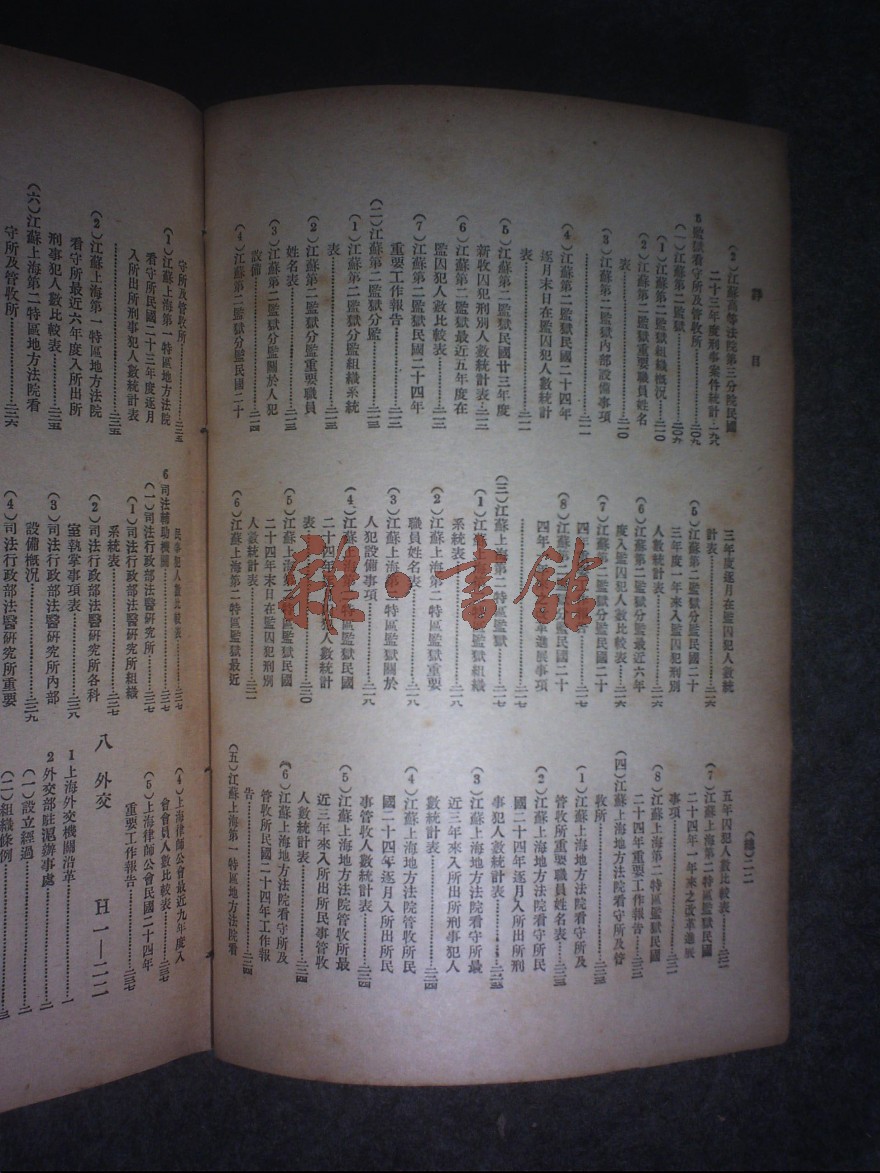 詳目
(總)二二
(2)江蘇高等法院第三分院民國
二十三年度刑事案件統計‥一九
5監獄看守所及管收所………二〇九
(一)江蘇第二監獄………二〇九
(1)江蘇第二監獄組織概况……二一〇
(2)江蘇第二監獄重要職員姓名
表………二一〇
(3)江蘇第二監獄內部設備事項
………二一一
(4)江蘇第二監獄民國二十四年
逐月末日在監囚犯人數統計
表………二一二
(5)江蘇第二監獄民國廿三年度
新收囚犯刑別人數統計表……二一三
(6)江蘇第二監獄最近五年度在
監囚犯人數比較表………二一三
(7)江蘇第二監獄民國二十四年
重要工作報告………二一三
(二)江蘇第二監獄分監………二一三
(1)江蘇第二監獄分監組織系統
表………二一三
(2)江蘇第二監獄分監重要職員
姓名表………二一三
(3)江蘇第二監獄分監關於人犯
設備………二一四
(4)江蘇第二監獄分監民國二十
三年度逐月在監囚犯人數統
計表………二一六
(5)江蘇第二監獄分監民國二十
三年度一年來入監囚犯刑別
人數統計表………二一六
(6)江蘇第二監獄分監最近六年
度入監囚犯人數比較表……二一六
(7)江蘇第二監獄分監民國二十
四年
(8)江蘇第二
四年
革進展事項
………二一七
(三)江蘇上海第二特區監獄………二一七
(1)江蘇上海第二特區監獄組織
系統表………二一八
(2)江蘇上海第二特區監獄重要
職員姓名表………二一八
(3)江蘇上海第二特區監獄關於
人犯設備事項………二一八
(4)江蘇上海第二特區監獄民國
二十四年逐月
犯人數統計
表………二二〇
(5)江蘇上海第二特區監獄民國
二十四年末日在監囚犯刑別
人數統計表………二二一
(6)江蘇上海第二特區監獄最近
五年囚犯人數比較表………二二一
(7)江蘇上海第二特區監獄民國
二十四年一年來之改革進展
事項………二二一
(8)江蘇上海第二特區監獄民國
二十四年重要工作報告……二二二
(四)江蘇上海地方法院看守所及管
收所………二二三
(1)江蘇上海地方法院看守所及
管收所重要職員姓名表……二二三
(2)江蘇上海地方法院看守所民
國二十四年逐月入所出所刑
事犯人數統計表………二二三
(3)江蘇上海地方法院看守所最
近三年來入所出所刑事犯人
數統計表………二二四
(4)江蘇上海地方法院管收所民
國二十四年逐月入所出所民
事管收人數統計表………二二四
(5)江蘇上海地方法院管收所最
近三年來入所出所民事管收
人數統計表………二二四
(6)江蘇上海地方法院看守所及
管收所民國二十四年工作報
告………二二四
(五)江蘇上海第一特區地方法院看
守所及管收所………二二五
(1)江蘇上海第一特區地方法院
看守所民國二十三年度逐月
入所出所刑事犯人數統計表
………二二五
(2)江蘇上海第一特區地方法院
看守所最近六年度入所出所
刑事犯人數比較表………二二五
(六)江蘇上海第二特區地方法院看
守所及管收所………二二六
民事犯人數比較表………二二七
6司法輔助機關………二二七
(一)司法行政部法醫研究所……二二七
(1)司法行政部法醫研究所組織
系統表………二二七
(2)司法行政部法醫研究所各科
室執掌事項表………二二八
(3)司法行政部法醫研究所內部
設備概況………二二九
(4)司法行政部法醫研究所重要
(4)上海律師公會最近九年度入
會會員人數比較表………二三七
(5)上海律師公會民國二十四年
重要工作報告………二三七
八 外交 H一—二二
1上海外交機關沿革………一
2外交部駐滬辦事處………二
(一)設立經過………二
(二)組織條例………三
雜·書館